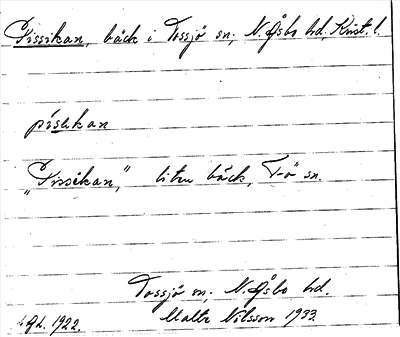 Pissikan, bäck i Tossjö sn, N. Åsbo hd, Krist. l.
píslikan
„Pissikan," liten bäck, T-ö sn.
Tossjö sn; N. Åsbo hd.
Malte Nilsson 1933.
1922